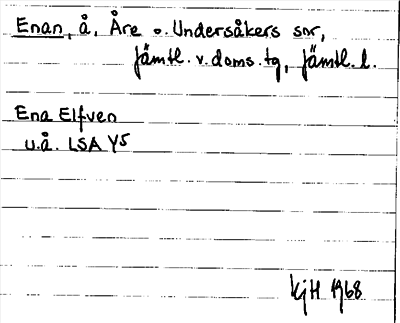 Enan, å, Åre o. Undersåkers snr,
Jämtl. v. doms. tg, Jämtl. l.
Ena Elfven
u.å. LSA Y5
KjH 1968